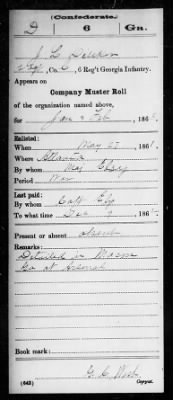 (Confederate.)
D 6 Ga.
J. L.
Co. C, 6 Reg't Georgia Infantry.
Appears on
Company Muster Roll
of the organization named above,
for Jan & Feb, 186
Enlisted:
When May 27, 186
Where Atlanta
By whom Maj
Period War
Last paid:
By whom Capt
To what time Dec 186
Present or absent Absent
Remarks:
Detailed in Macon
Ga at Arsenal
Book mark:
(642) Copyist.